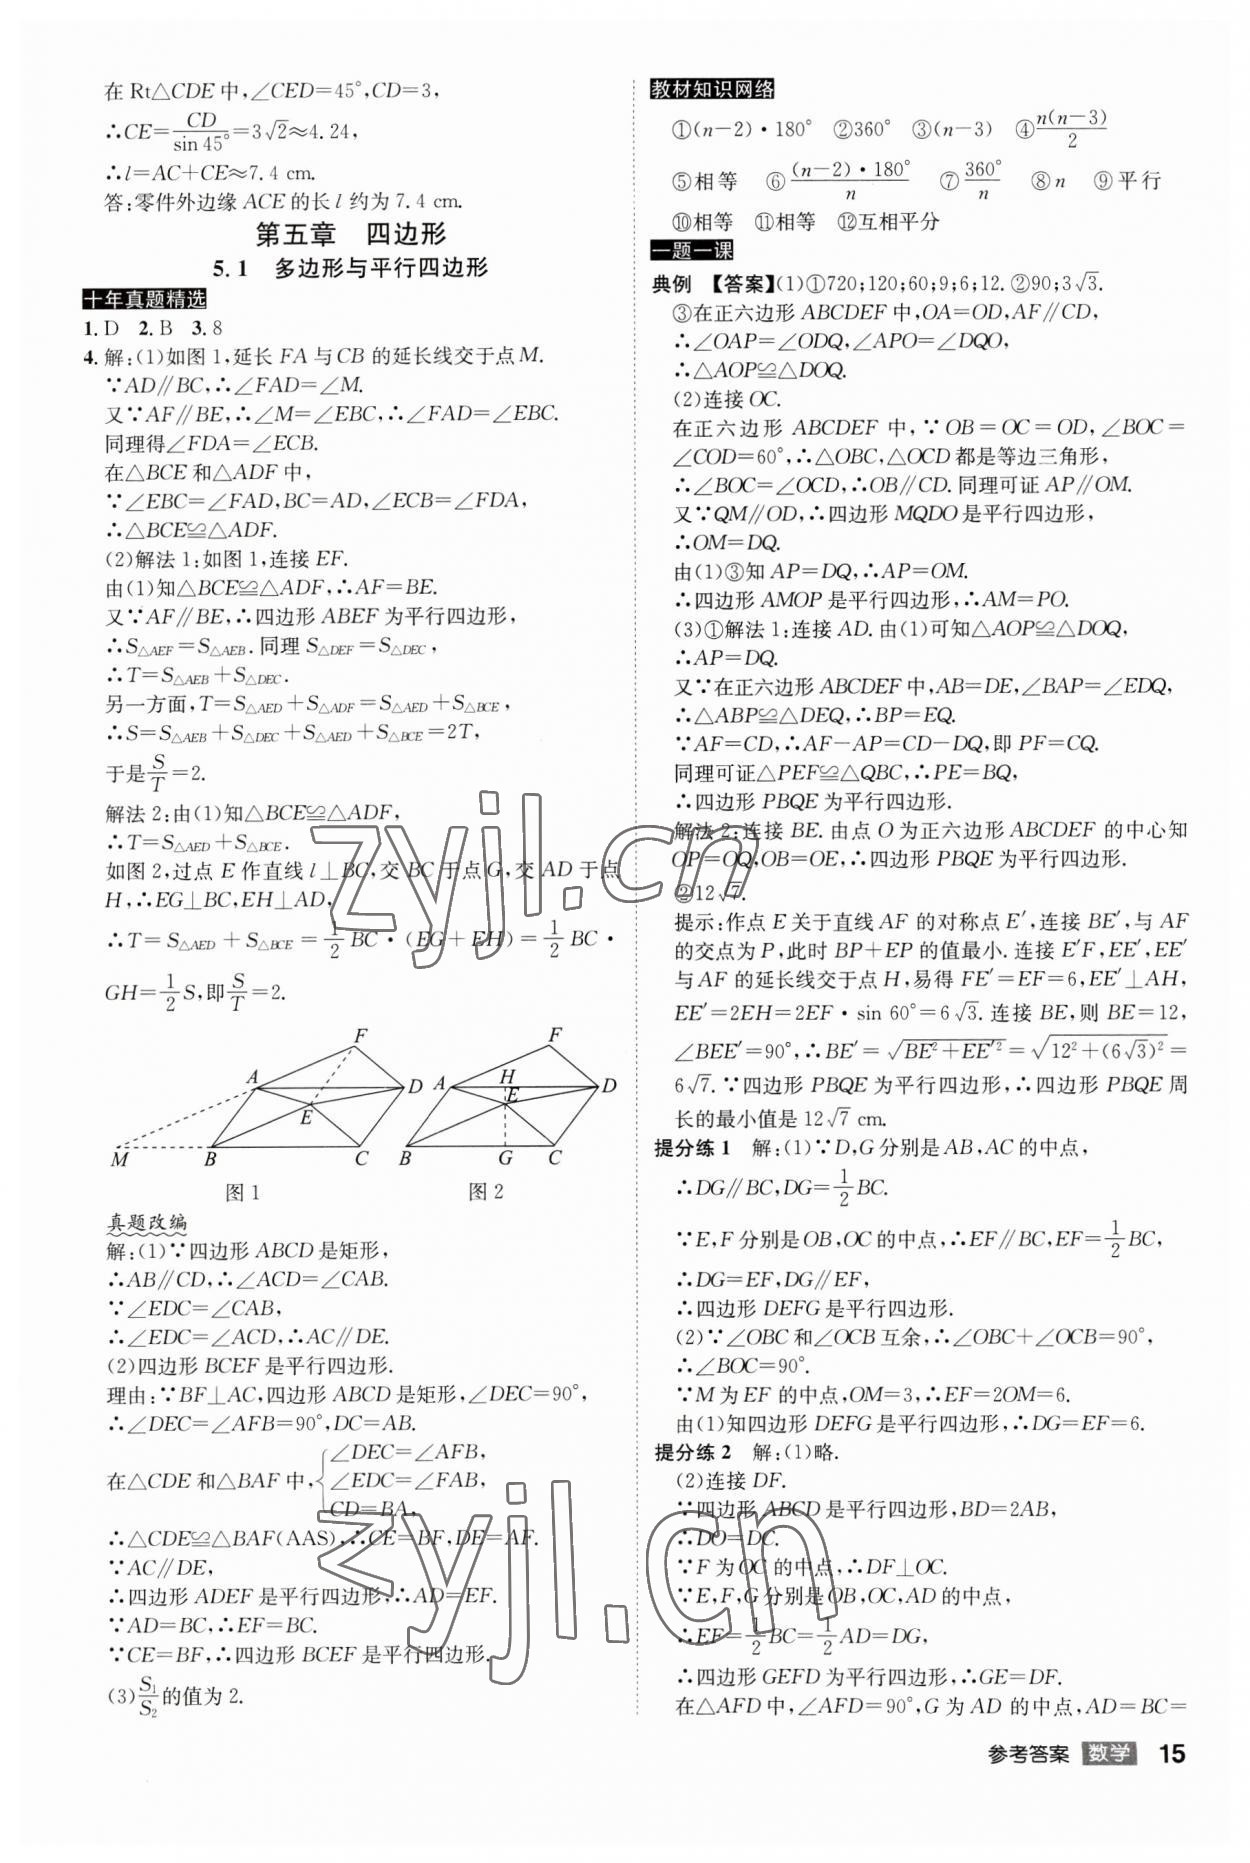 在 Rt△CDE 中,∠CED=45°,CD=3,
∴CE=CD/sin 45°=3√2≈4.24,
∴l=AC+CE≈7.4 cm.
答:零件外边缘 ACE 的长 l 约为 7.4 cm.
第五章 四边形
5.1 多边形与平行四边形
十年真题精选
1. D 2. B 3. 8
4. 解:(1)如图 1,延长 FA 与 CB 的延长线交于点 M.
∵AD∥BC,∴∠FAD=∠M.
又∵AF∥BE,∴∠M=∠EBC,∴∠FAD=∠EBC.
同理得∠FDA=∠ECB.
在△BCE 和△ADF 中,
∵∠EBC=∠FAD,BC=AD,∠ECB=∠FDA,
∴△BCE≌△ADF.
(2)解法 1:如图 1,连接 EF.
由(1)知△BCE≌△ADF,∴AF=BE.
又∵AF∥BE,∴四边形 ABEF 为平行四边形,
∴S△AEF=S△AEB.同理 S△DEF=S△DEC,
∴T=S△AEB+S△DEC.
另一方面,T=S△AED+S△ADF=S△AED+S△BCE,
∴S=S△AEB+S△DEC+S△AED+S△BCE=2T,
于是S/T=2.
解法 2:由(1)知△BCE≌△ADF,
∴T=S△AED+S△BCE.
如图 2,过点 E 作直线 l⊥BC,交 BC 于点 G,交 AD 于点
H,∴EG⊥BC,EH⊥AD,
∴T=S△AED+S△BCE=1/2 BC·(EG+EH)=1/2 BC·
GH=1/2 S,即S/T=2.
F
A
D
E
M
B
C
图 1
F
A
H
D
E
B
G
C
图 2
真题改编
解:(1)∵四边形 ABCD 是矩形,
∴AB∥CD,∴∠ACD=∠CAB.
∵∠EDC=∠CAB,
∴∠EDC=∠ACD,∴AC∥DE.
(2)四边形 BCEF 是平行四边形.
理由:∵BF⊥AC,四边形 ABCD 是矩形,∠DEC=90°,
∴∠DEC=∠AFB=90°,DC=AB.
在△CDE 和△BAF 中,{∠DEC=∠AFB,
∠EDC=∠FAB,
CD=BA,
∴△CDE≌△BAF(AAS),∴CE=BF,DE=AF.
∵AC∥DE,
∴四边形 ADEF 是平行四边形,∴AD=EF.
∵AD=BC,∴EF=BC.
∵CE=BF,∴四边形 BCEF 是平行四边形.
(3)S₁/S₂的值为 2.
教材知识网络
①(n-2)·180° ②360° ③(n-3) ④n(n-3)/2
⑤相等 ⑥(n-2)·180°/n ⑦360°/n ⑧n ⑨平行
⑩相等 ⑪相等 ⑫互相平分
一题一课
典例 【答案】(1)①720;120;60;9;6;12. ②90;3√3.
③在正六边形 ABCDEF 中,OA=OD,AF∥CD,
∴∠OAP=∠ODQ,∠APO=∠DQO,
∴△AOP≌△DOQ.
(2)连接 OC.
在正六边形 ABCDEF 中,∵OB=OC=OD,∠BOC=
∠COD=60°,∴△OBC,△OCD 都是等边三角形,
∴∠BOC=∠OCD,∴OB∥CD.同理可证 AP∥OM.
又∵QM∥OD,∴四边形 MQDO 是平行四边形,
∴OM=DQ.
由(1)③知 AP=DQ,∴AP=OM.
∴四边形 AMOP 是平行四边形,∴AM=PO.
(3)①解法 1:连接 AD.由(1)可知△AOP≌△DOQ,
∴AP=DQ.
又∵在正六边形 ABCDEF 中,AB=DE,∠BAP=∠EDQ,
∴△ABP≌△DEQ,∴BP=EQ.
∵AF=CD,∴AF-AP=CD-DQ,即 PF=CQ.
同理可证△PEF≌△QBC,∴PE=BQ,
∴四边形 PBQE 为平行四边形.
解法 2:连接 BE.由点 O 为正六边形 ABCDEF 的中心知
OP=OQ,OB=OE,∴四边形 PBQE 为平行四边形.
②12√7.
提示:作点 E 关于直线 AF 的对称点 E′,连接 BE′,与 AF
的交点为 P,此时 BP+EP 的值最小.连接 E′F,EE′,EE′
与 AF 的延长线交于点 H,易得 FE′=EF=6,EE′⊥AH,
EE′=2EH=2EF·sin 60°=6√3.连接 BE,则 BE=12,
∠BEE′=90°,∴BE′=√(BE²+EE′²)=√(12²+(6√3)²)=
6√7.∵四边形 PBQE 为平行四边形,∴四边形 PBQE 周
长的最小值是 12√7 cm.
提分练 1 解:(1)∵D,G 分别是 AB,AC 的中点,
∴DG∥BC,DG=1/2 BC.
∵E,F 分别是 OB,OC 的中点,∴EF∥BC,EF=1/2 BC,
∴DG=EF,DG∥EF,
∴四边形 DEFG 是平行四边形.
(2)∵∠OBC 和∠OCB 互余,∴∠OBC+∠OCB=90°,
∴∠BOC=90°.
∵M 为 EF 的中点,OM=3,∴EF=2OM=6.
由(1)知四边形 DEFG 是平行四边形,∴DG=EF=6.
提分练 2 解:(1)略.
(2)连接 DF.
∵四边形 ABCD 是平行四边形,BD=2AB,
∴DO=DC.
∵F 为 OC 的中点,∴DF⊥OC.
∵E,F,G 分别是 OB,OC,AD 的中点,
∴EF=1/2 BC=1/2 AD=DG,
∴四边形 GEFD 为平行四边形,∴GE=DF.
在△AFD 中,∠AFD=90°,G 为 AD 的中点,AD=BC=
参考答案 数学 15
zyjl.cn
zyjl.cn